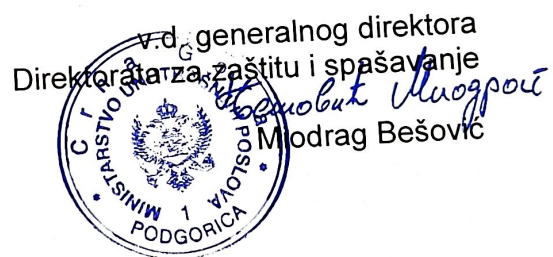 v.d. generalnog direktora
Direktorata za zaštitu i spašavanje
Miodrag Bešović
Crna Gora
MINISTARSTVO UNUTRAŠNJIH POSLOVA
1
PODGORICA